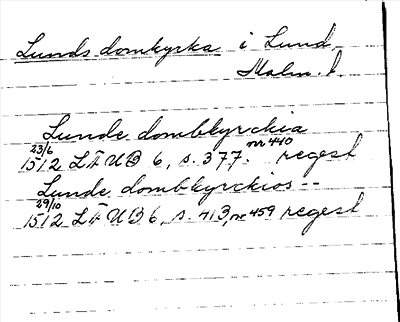 Lunds domkyrka i Lund,
Malm. l.
Lunde dombkyrckia
23/6 1512 LÄUB 6, s. 377. nr 440 regest
Lunde dombkyrckios--
29/10 1512 LÄUB 6, s. 413, nr 459 regest